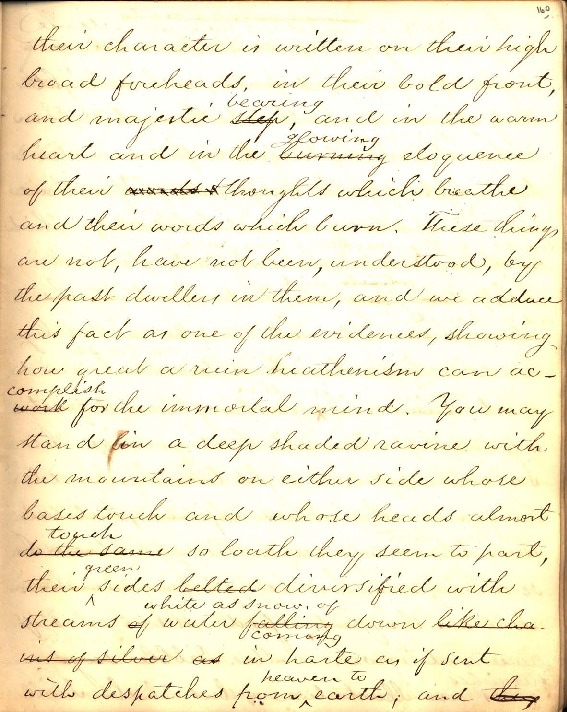 160
their character is written on their high
broad foreheads, in their bold front,
bearing
and majestic step, and in the warm
glowing
heart and in the burning eloquence
of their words & thoughts which breathe
and their words which burn. These things
are not, have not been, understood, by
the past dwellers in them, and we adduce
this fact as one of the evidences, showing
how great a ruin heathenism can ac-
complish
work for the immortal mind. You may
stand in a deep shaded ravine with
the mountains on either side whose
bases touch and whose heads almost
touch
do the same so loath they seem to part,
green
their sides belted diversified with
white as snow, of
streams of water falling down like cha
coming
ins of silver as in haste as if sent
heaven to
with despatches from earth; and they